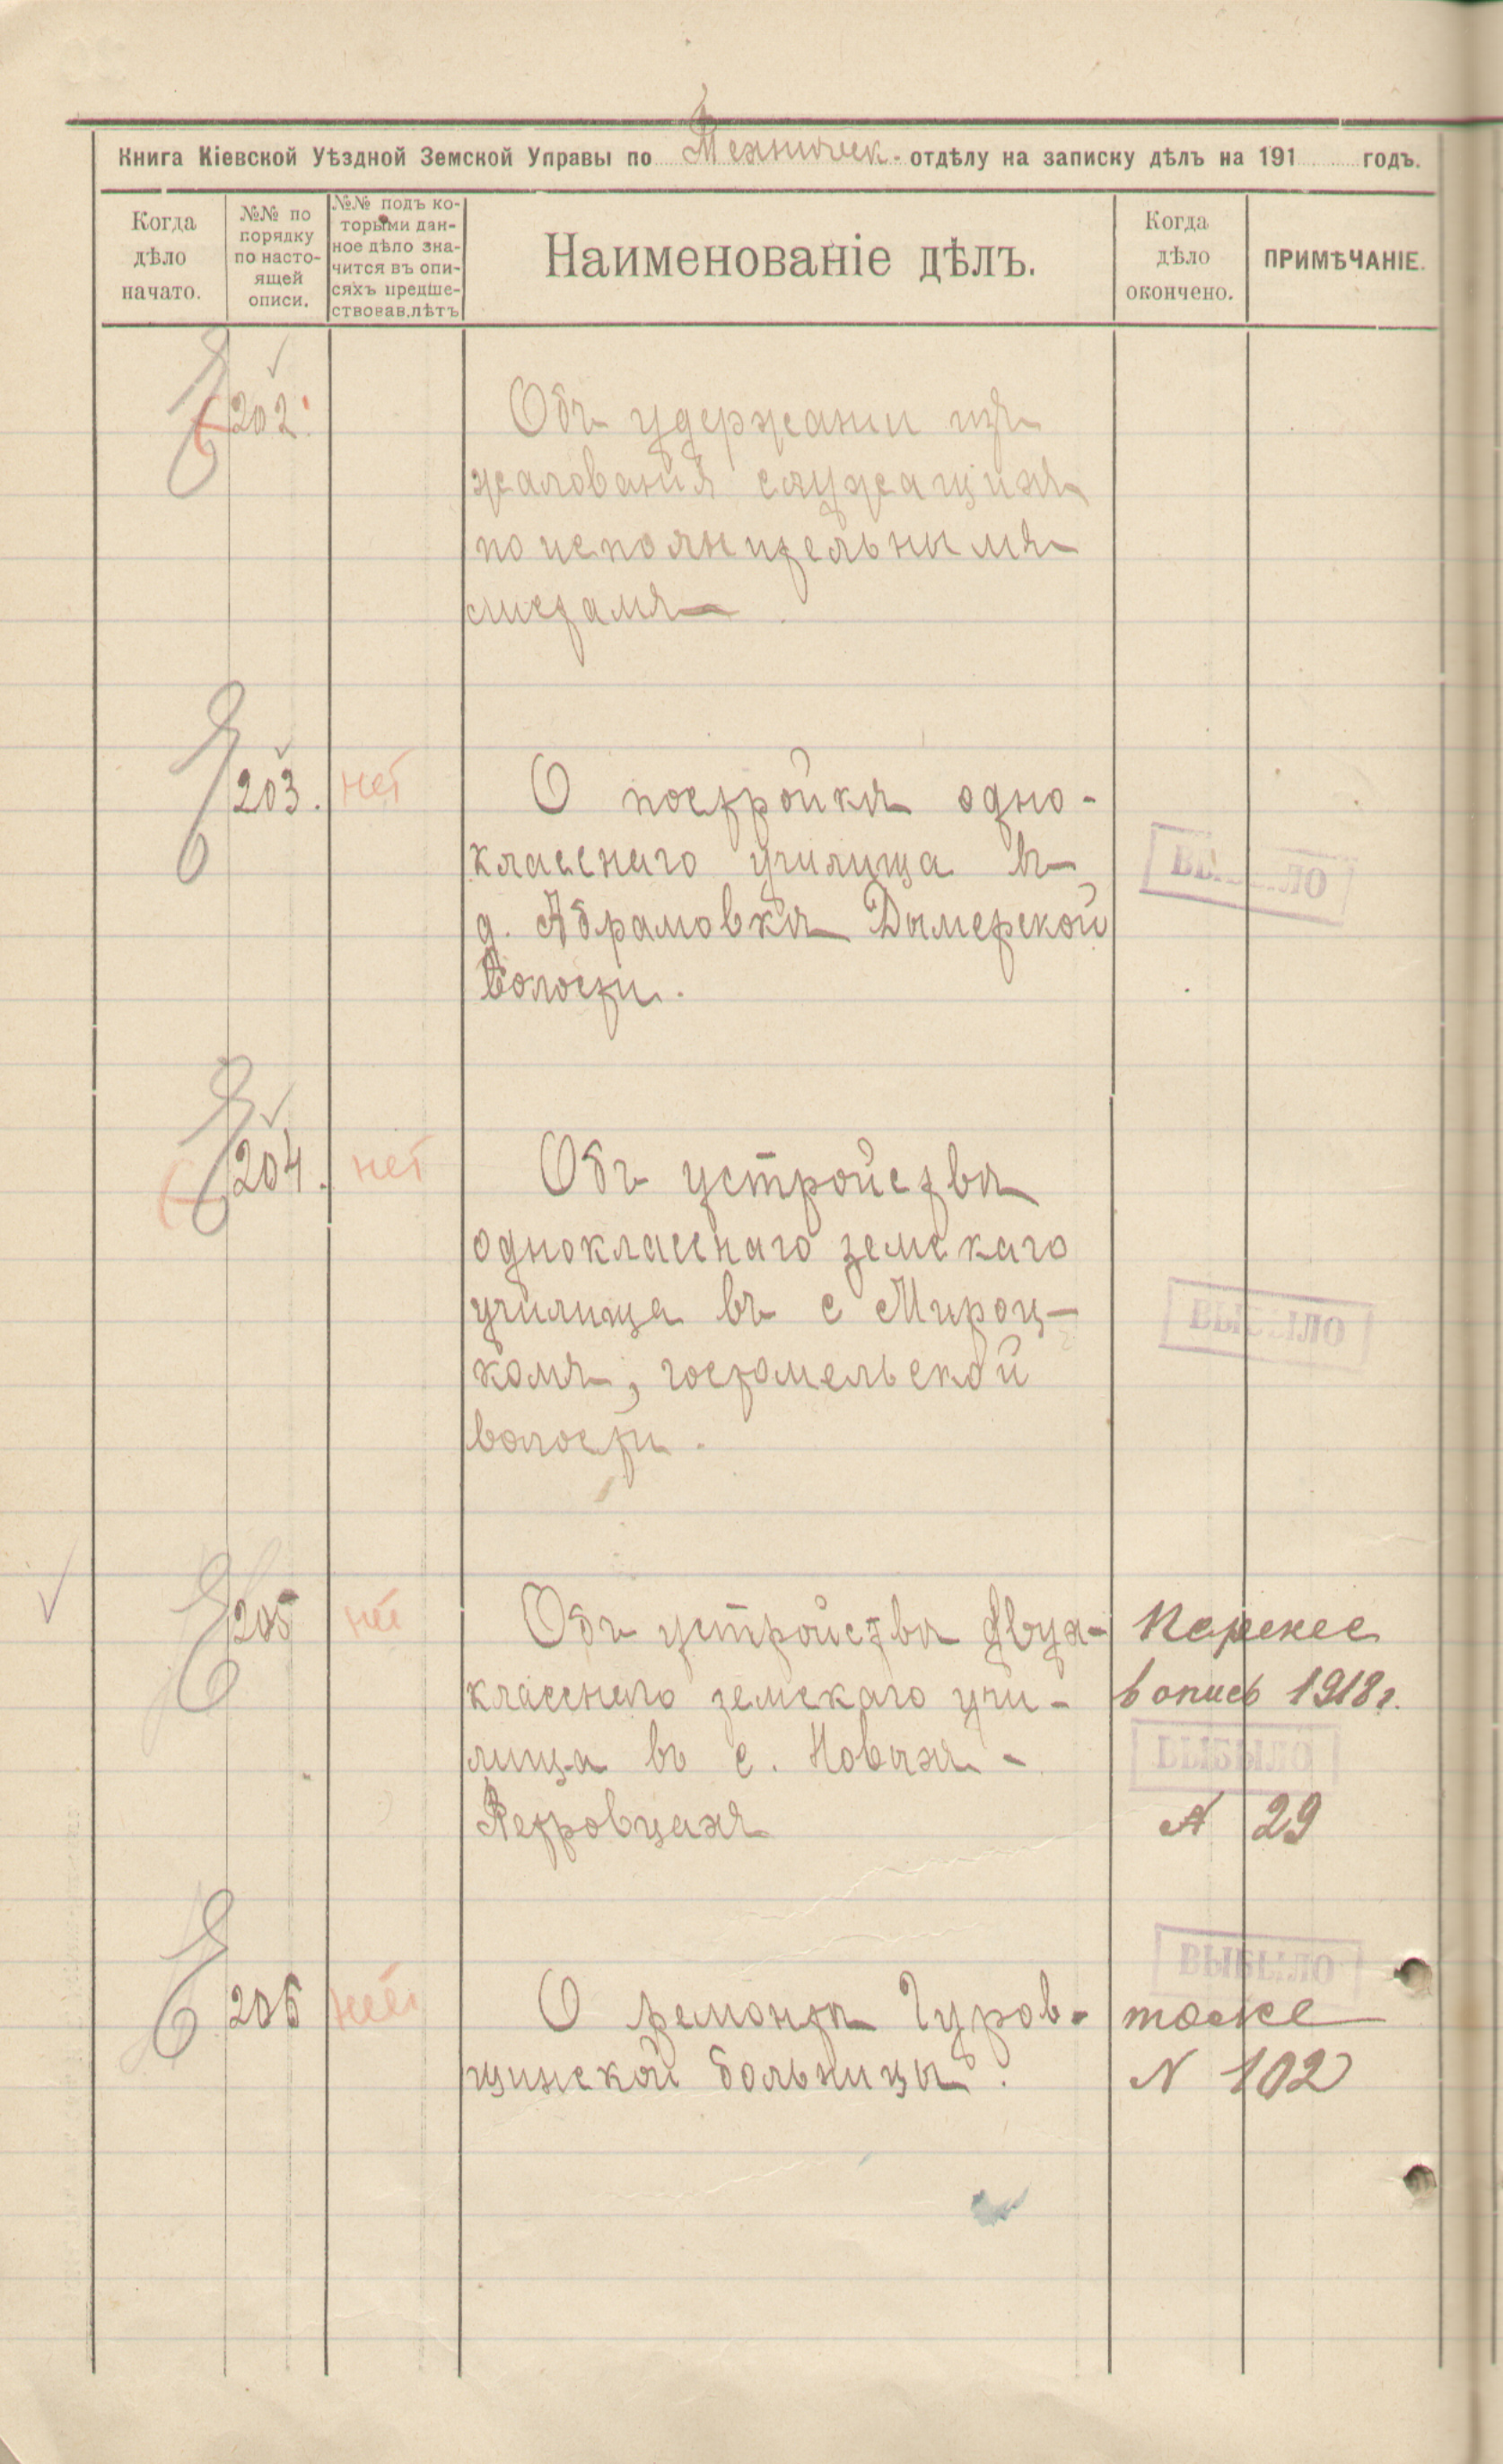 Книга Кіевской Уѣздной Земской Управы по Технич­еск. отдѣлу на записку дѣлъ на 191 годъ.
Когда
дѣло
начато.
№№ по
порядку
по насто-
ящей
описи.
№№ подъ ко-
торыми дан-
ное дѣло зна-
чится въ опи-
сяхъ предше-
ствовав.лѣтъ
Наименованіе дѣлъ.
Когда
дѣло
окончено.
ПРИМѢЧАНІЕ.
202.
Объ удержании изъ
жалования служащихъ
по исполнительнымъ
листамъ
203.
нет
О постройкѣ одно-
класснаго училища въ
д. Абрамовкѣ Дымерской
Волости.
ВЫБЫЛО
204.
нет
Объ устройствѣ
одноклассного земскаго
училища въ с Мироц-
комъ, гостомельской
волости.
ВЫБЫЛО
205
не
Объ устройствѣ двух-
класснаго земскаго учи-
лища въ с. Новыхъ-
Петровцахъ
Перенес
в опись 1918 г.
ВЫБЫЛО
N 29
206
нет
О ремонтѣ Гуров-
щинской больницы.
ВЫБЫЛО
тоже
N 102